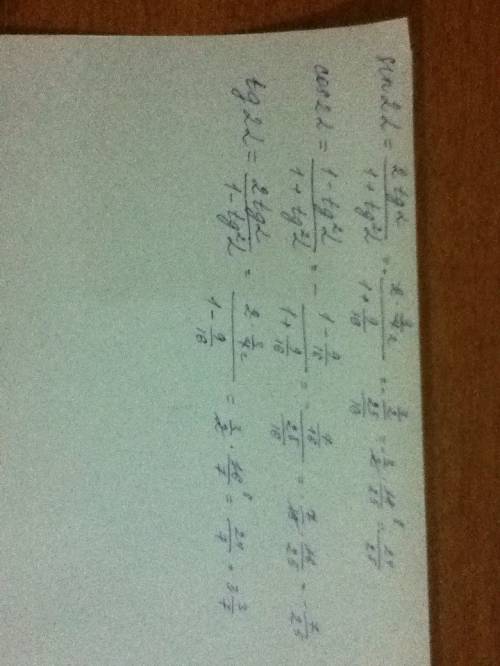 sin2α = 2tgα / (1 + tg²α) = - (2 · 3/4) / (1 + 9/16) = - (3/2) / (25/16) = - 3/2 · 16/25 = - 24/25
cos2α = (1 - tg²α) / (1 + tg²α) = - (1 - 9/16) / (1 + 9/16) = - (7/16) / (25/16) = 7/16 · 16/25 = - 7/25
tg2α = 2tgα / (1 - tg²α) = (2 · 3/4) / (1 - 9/16) = 3/2 · 16/7 = 24/7 = 3 3/7